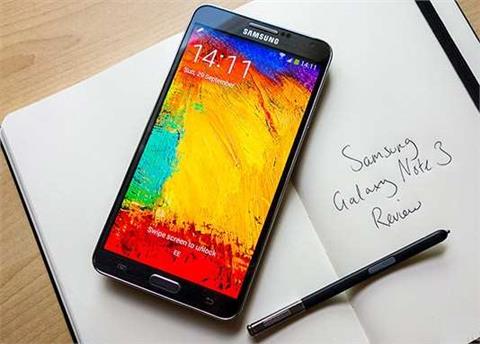 SAMSUNG
14:11
14:11
Sun, 29 September
Swipe screen to unlock
EE
Samsung
Galaxy Note 3
Review